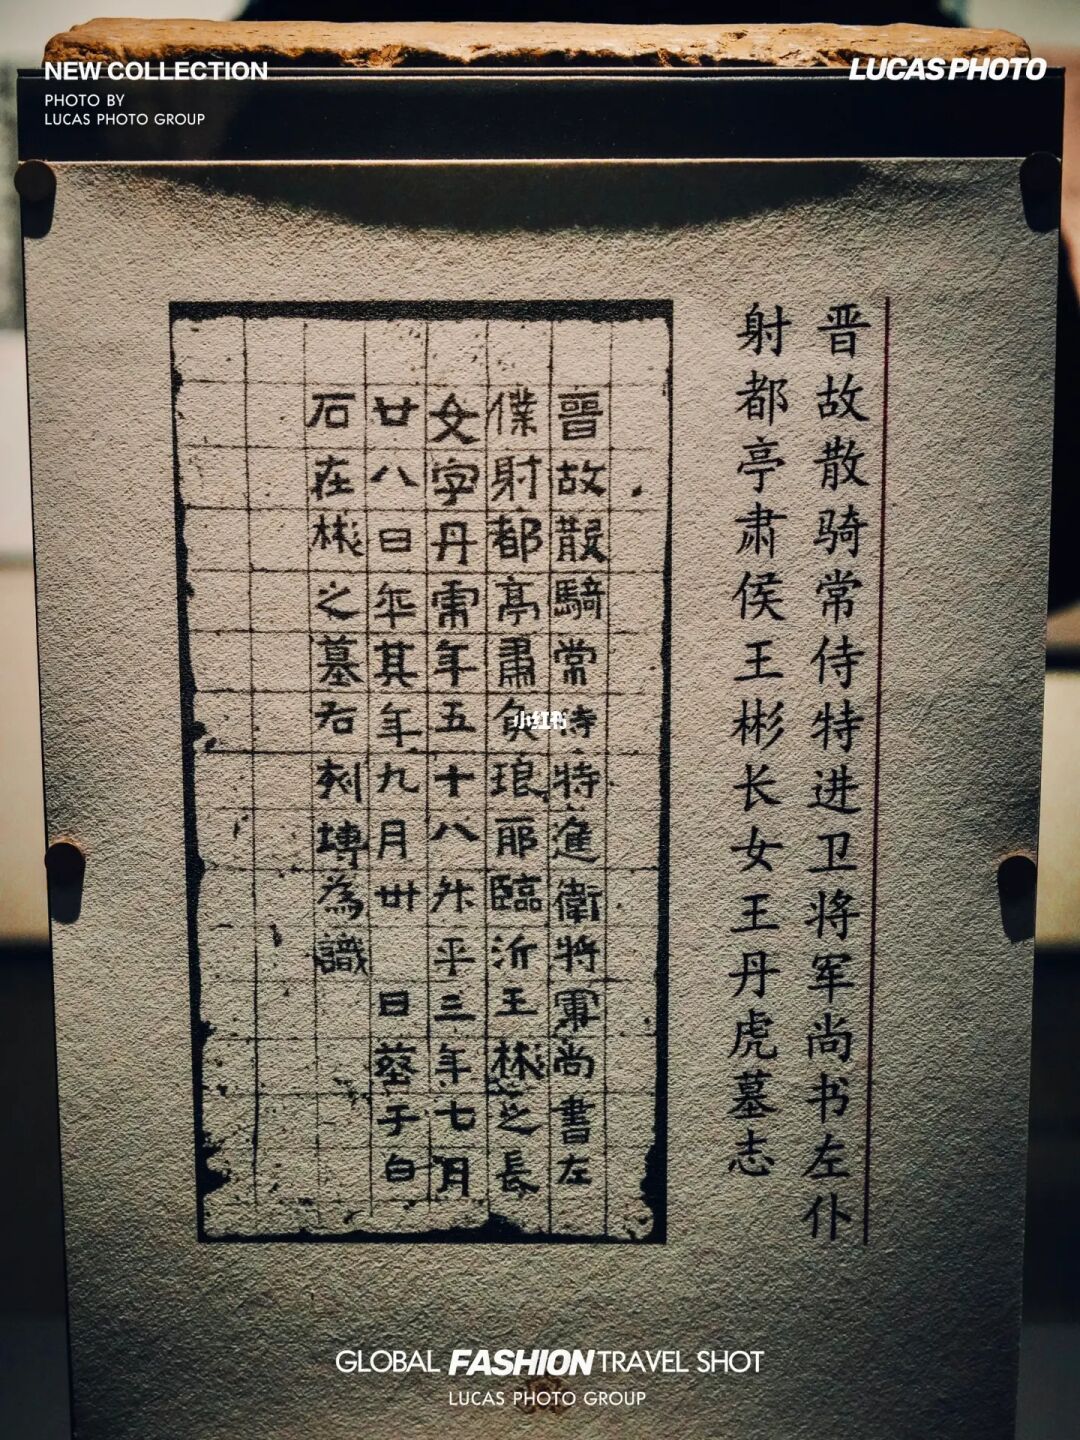 NEW COLLECTION
PHOTO BY
LUCAS PHOTO GROUP
LUCAS PHOTO
晋故散骑常侍特进卫将军尚书左仆
射都亭肃侯王彬长女王丹虎墓志
晉故散騎常侍特進衛將軍尚書左
僕射都亭肅侯琅耶臨沂王彬之長
女字丹虎年五十八升平三年七月
廿八日卒其年九月卅日葬于白
石在彬之墓右刻塼為識
小红书
GLOBAL FASHION TRAVEL SHOT
LUCAS PHOTO GROUP